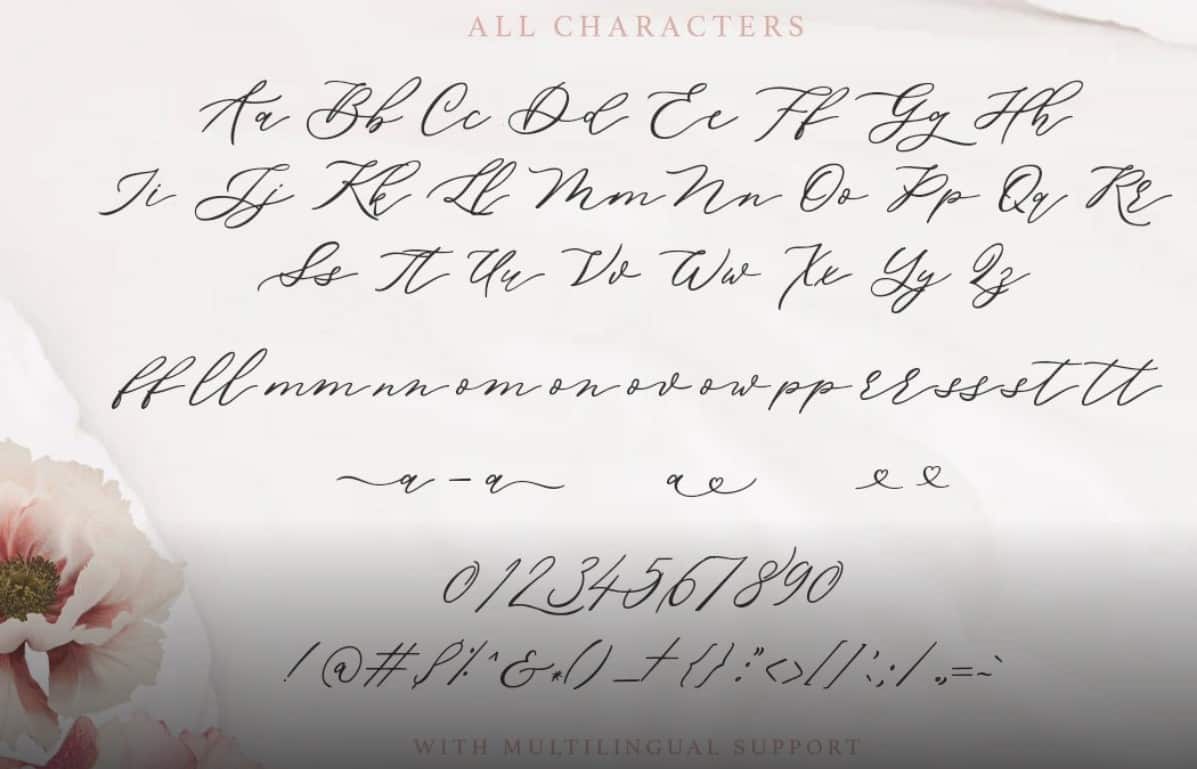 ALL CHARACTERS
Aa Bb Cc Dd Ee Ff Gg Hh
Ii Jj Kk Ll Mm Nn Oo Pp Qq Rr
Ss Tt Uu Vv Ww Xx Yy Zz
ff ll mm nn om on ov ow pp rr ss st tt
a – a ae e e
0 1 2 3 4 5 6 7 8 9 0
! @ # $ % ^ & * ( ) _ + { } : " < > [ ] ' ; / . , = ~ `
WITH MULTILINGUAL SUPPORT